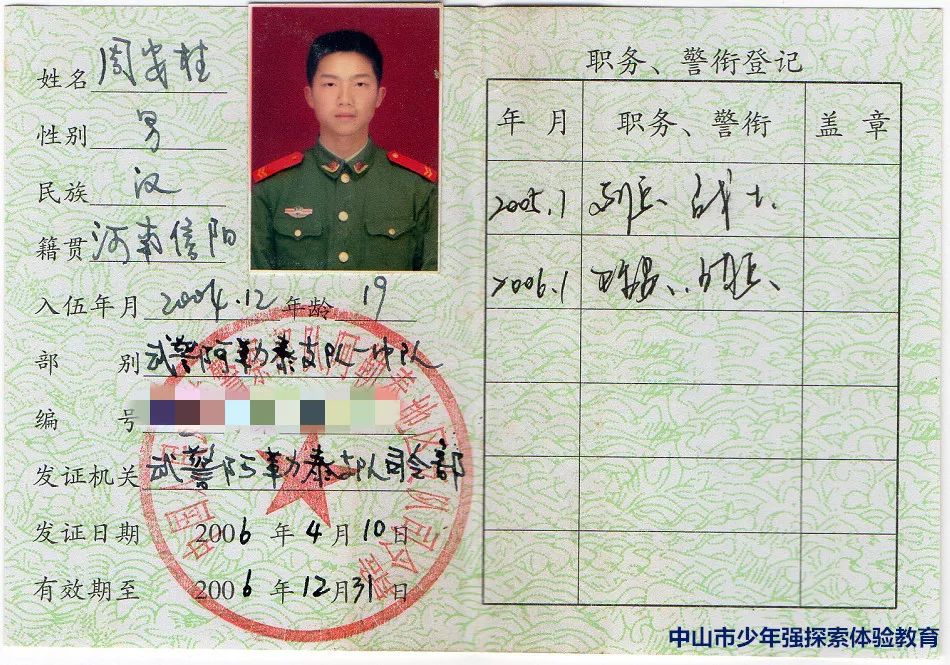 姓名 周安桂
性别 男
民族 汉
籍贯 河南信阳
入伍年月 2004.12 年龄 19
部 别 武警阿勒泰支队一中队
编 号
发证机关 武警阿勒泰支队司令部
发证日期 2006 年 4 月 10 日
有效期至 2006 年 12 月 31 日
职务、警衔登记
年 月 职务、警衔 盖 章
2005.1 列兵 战士
2006.1
中山市少年强探索体验教育